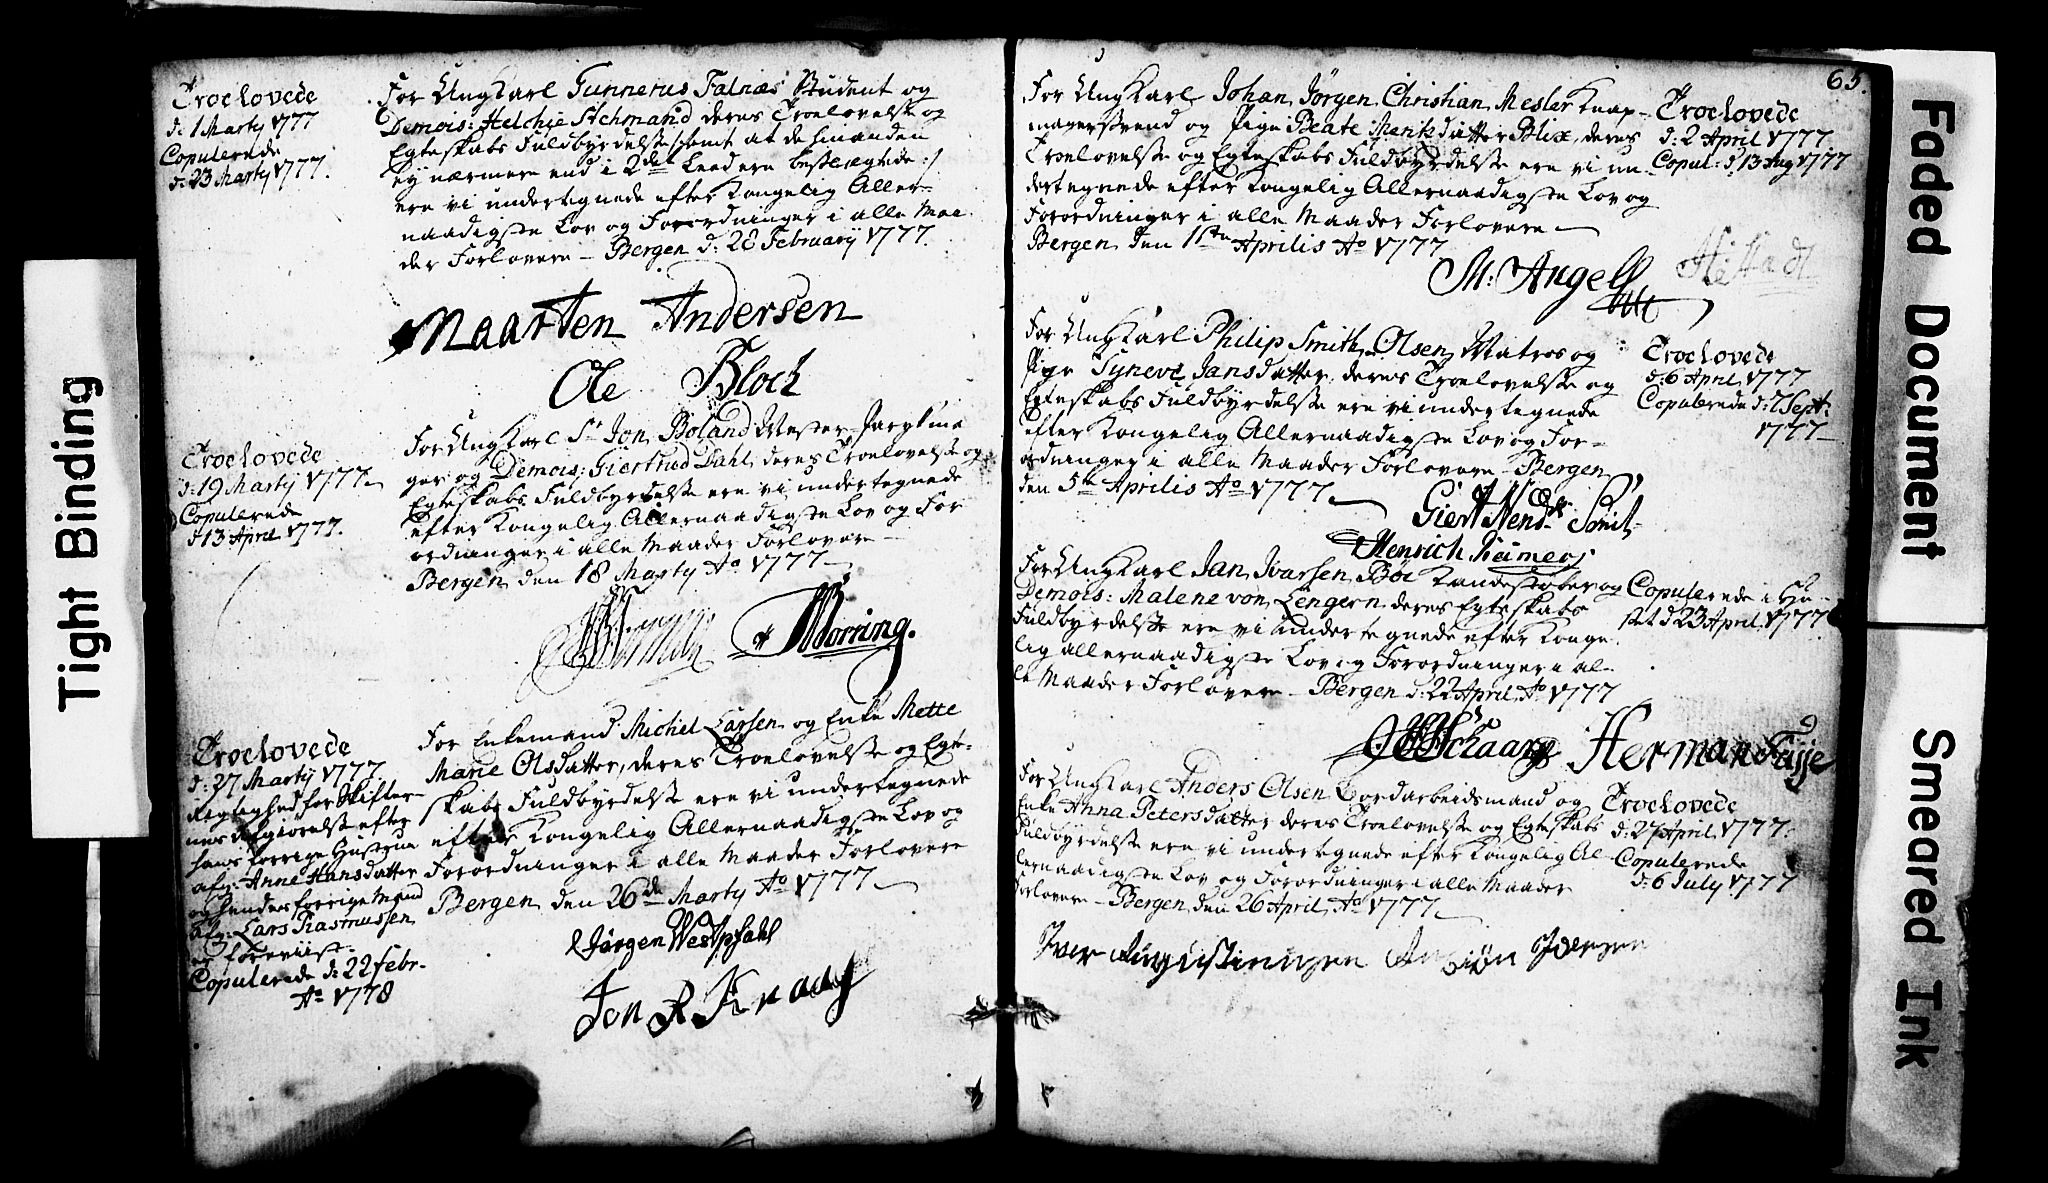 Troelovede
d: 1 Martÿ 1777
Copulerede
d: 23 Martÿ 1777.
For UngKarl Tunnerus Falnæs Student og
Demois: Helchie deres Troelovelse og
Egteskabs Fuldbÿrdelse samt at de hinanden
ej nærmere end i 2det Leed ere beslegtede :/
ere vi undertegnede efter Kongelig Aller-
naadigste Lov og Forordninger i alle Maa-
der Forlovere - Bergen d: 28 Februarÿ 1777.
Maarten Andersen
Ole Bloch
Troelovede
d: 19 Martÿ 1777.
Copulerede
d 13 April 1777.
For UngKarl Sr Jon Boland
ger og Demois: Giertrud Dahl, deres Troelovelse og
Egteskabs Fuldbÿrdelse ere vi undertegnede
efter Kongelig Allernaadigste Lov og For
ordninger i alle Maader Forlovere -
Bergen den 18 Marty Ao 1777
Morring.
Troelovede
d: 27 Martÿ 1777
Rigtighed for Skifter-
nes Afgiørelse efter
hans forrige Hustrue
afg: Anne Hansdatter
og hendes forrige Mand
afg: Lars Rasmussen
er foreviist.
Copulerede d: 22 febr.
Ao 1778
For Enkemand Michel Larsen og Enke Mette
Marie Olsdatter, deres Troelovelse og Egte-
skabs Fuldbÿrdelse ere vi undertegnede
efter Kongelig Allernaadigste Lov og
Forordninger i alle Maader Forlovere
Bergen den 26de Marty Ao 1777
Jørgen Westphahl
Jon R Kraay
65.
For UngKarl Johan Jörgen Christian Mesler Knap-
magersvend og Pige Beate Meriksdatter Blix, deres
Troelovelse og Egteskabs Fuldbÿrdelse ere vi un-
dertegnede efter Kongelig Allernaadigste Lov og
Forordninger i alle Maader Forlovere -
Bergen den 1ste Aprilis Ao 1777
Troelovede
d: 2 April 1777
Copul: d: 13 Aug 1777
M: Angell
For UngKarl Philip Smith Olsen Matros og
Pige Syneve Jansdatter, deres Troelovelse og
Egteskabs Fuldbÿrdelse ere vi undertegnede
efter Kongelig Allernaadigste Lov og For-
ordninger i alle Maader Forlovere - Bergen
den 5te Aprilis Ao 1777
Troelovede
d: 6 April 1777
Copulerede d: 7 Sept:
1777
Giert Smit
Henrich Reimers
For UngKarl Jan Ivarsen Böe Kandestøber og
Demois: Malene von Lengern deres Egteskabs
Fuldbÿrdelse ere vi undertegnede efter Konge
lig allernaadigste Lov og Forordninger i al-
le Maader Forlovere - Bergen d: 22 April Ao 1777
Copulerede i Hu-
set d 23 April 1777
Schaarp Herman Frisse
For UngKarl Anders Olsen Bordarbeidsmand og
Enke Anna Petersdatter deres Troelovelse og Egteskabs
Fuldbÿrdelse ere vi undertegnede efter Kongelig Al-
lernaadigste Lov og Forordninger i alle Maader
Forlovere - Bergen den 26 April Ao 1777
Troelovede
d: 27 April 1777.
Copulerede
d: 6 July 1777
Iver Augustinusen
Tight Binding
Faded Document
Smeared Ink